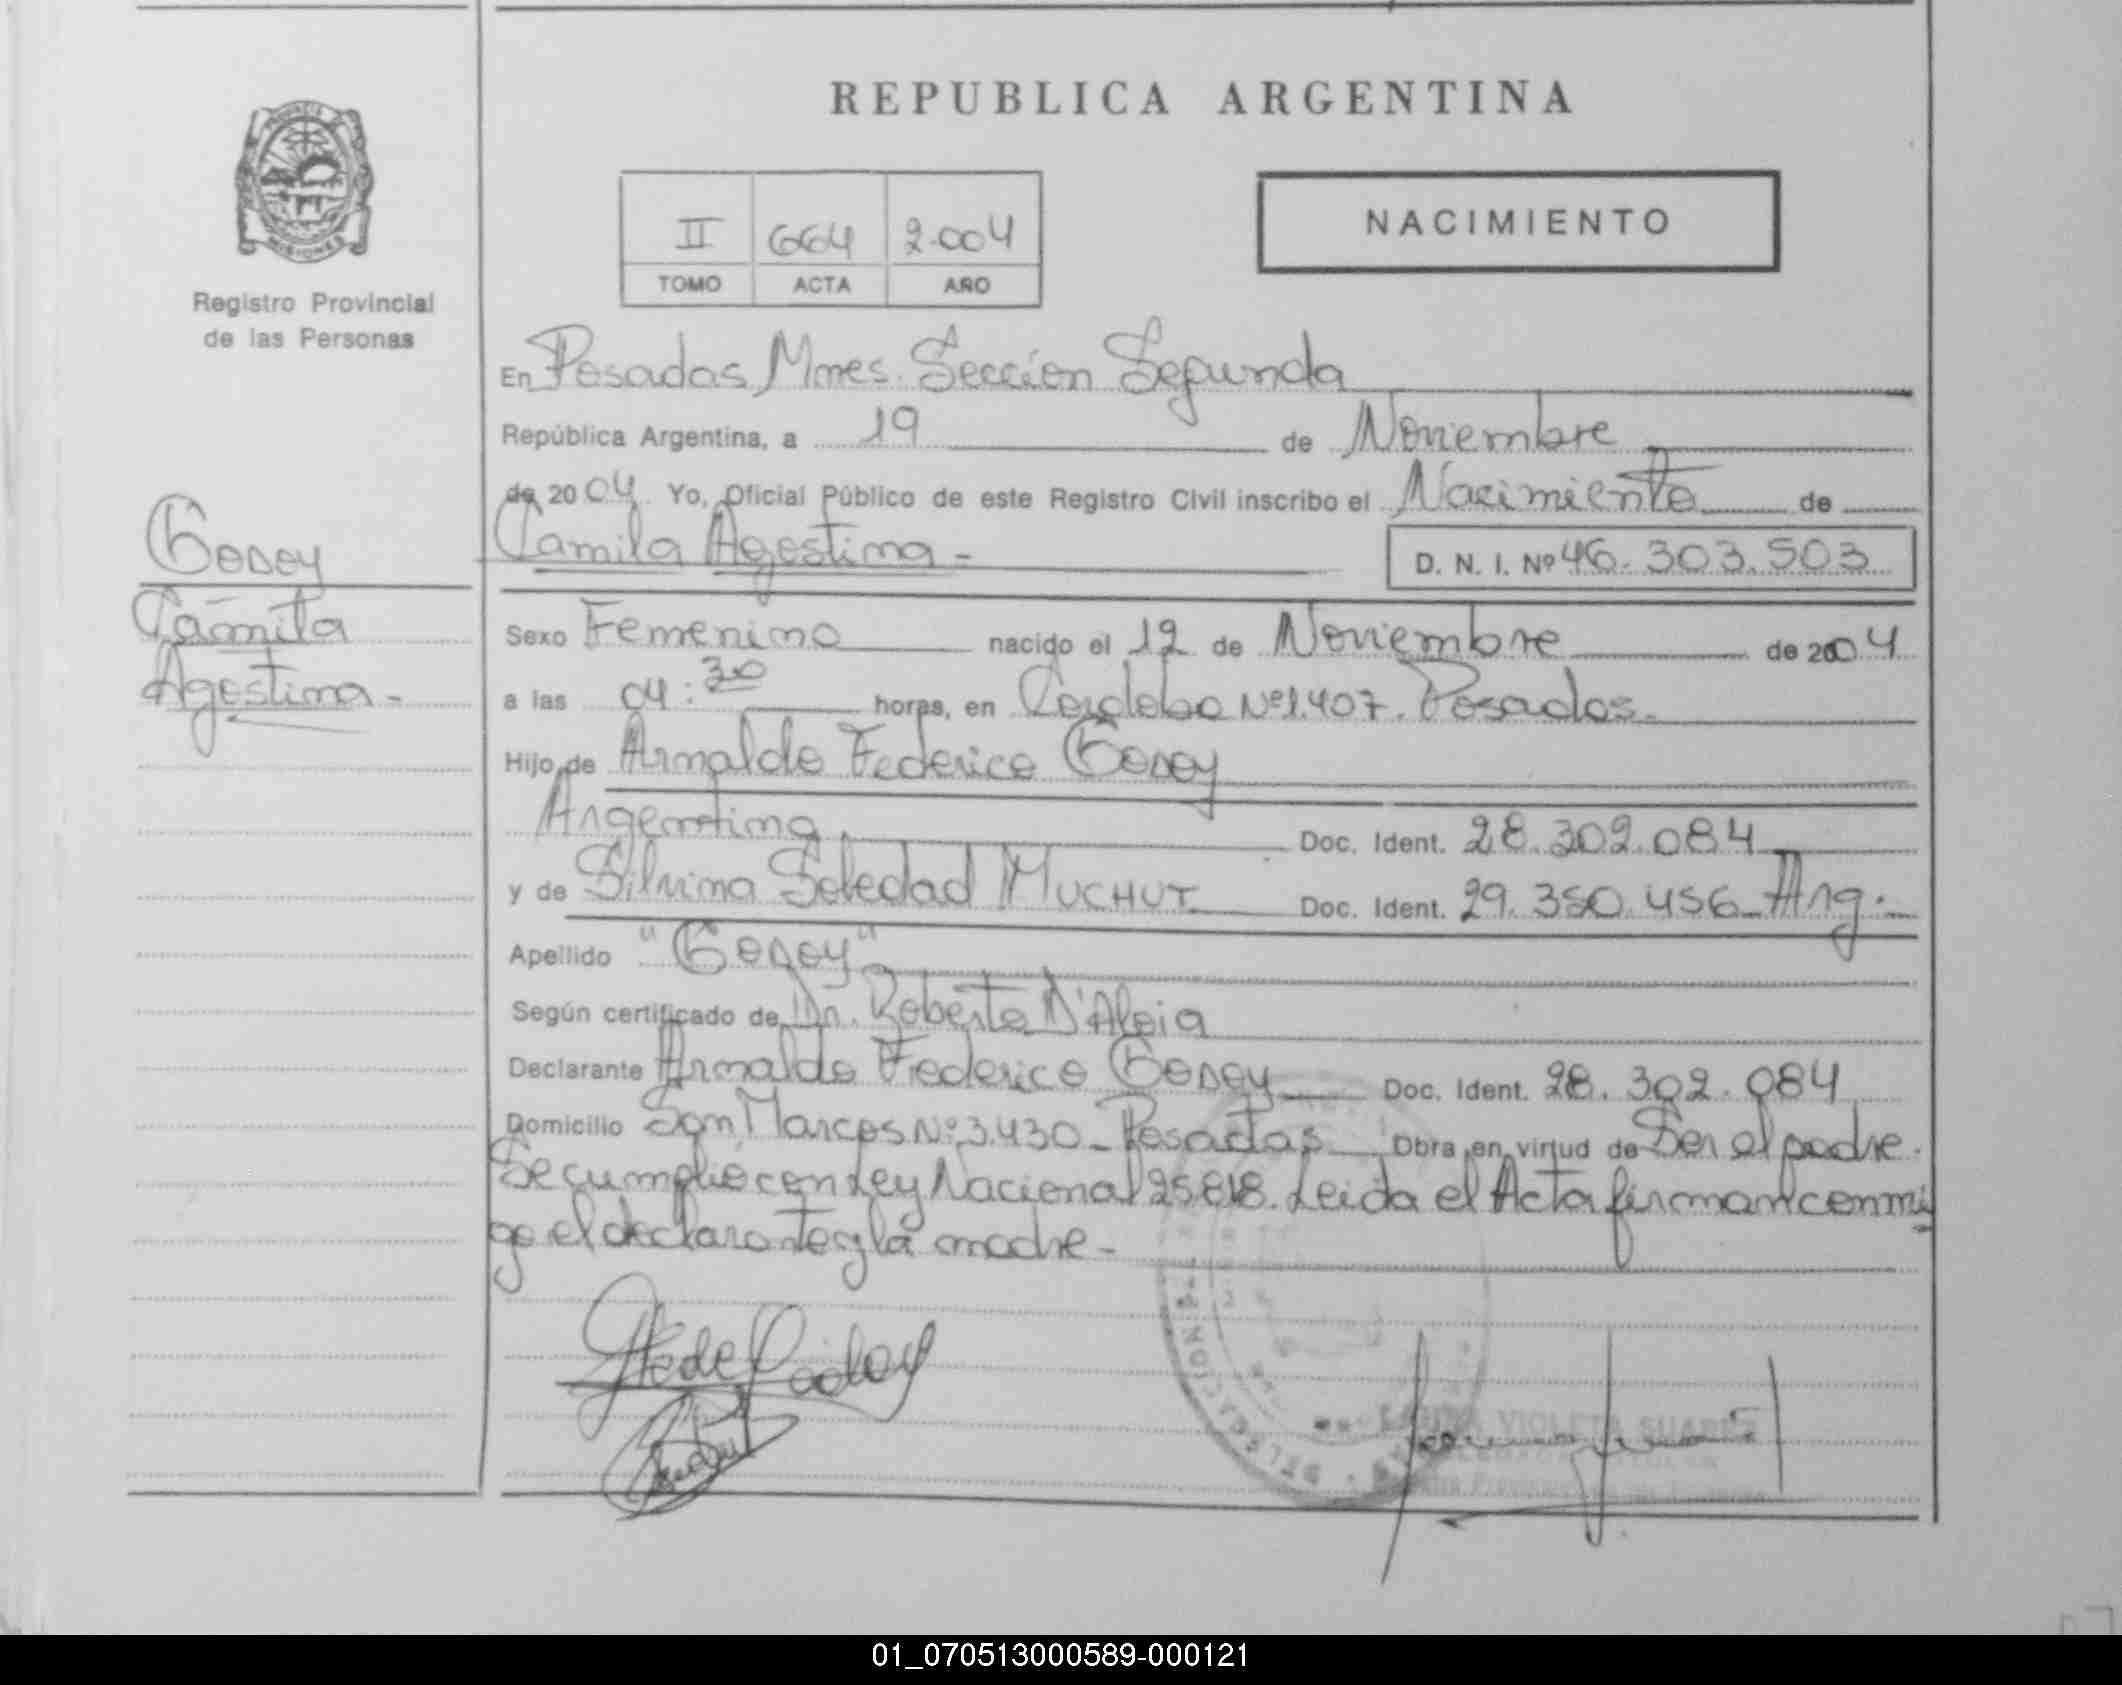 REPUBLICA ARGENTINA
PROVINCIA DE
MISIONES
Registro Provincial
de las Personas
II 664 2.004
TOMO ACTA AÑO
NACIMIENTO
En Posadas, Mnes. Sección Segunda
República Argentina, a 19 de Noviembre
de 2004 Yo, Oficial Público de este Registro Civil inscribo el Nacimiento de
Camila Agostina - D. N. I. Nº 46.303.503
Godoy
Camila
Agostina -
Sexo Femenino nacido el 12 de Noviembre de 2004
a las 04:30 horas, en Cordoba Nº 1.407. Posadas.
Hijo de Arnaldo Federico Godoy
Argentino Doc. Ident. 28.302.084
y de Silvina Soledad Muchut Doc. Ident. 29.350.456 Arg.
Apellido "Godoy"
Según certificado de Dr. Roberto D'Aloia
Declarante Arnaldo Federico Godoy Doc. Ident. 28.302.084
Domicilio San Marcos Nº 3.430 - Posadas Obra en virtud de Ser el padre.
Se cumplió con Ley Nacional 25.818. Leida el Acta firman conmi
go el declarante y la madre -
Fede Godoy
VIOLETA SUAREZ
01_070513000589-000121